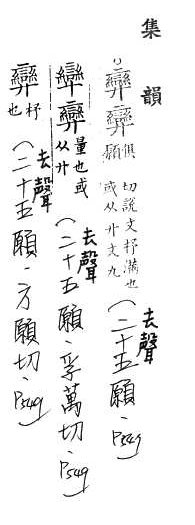 集韻
俱願切說文抒滿也或从廾文九(去聲二十五願．P549
量也或从廾(去聲二十五願．孚萬切．P549
抒也(去聲二十五願．方願切．P549